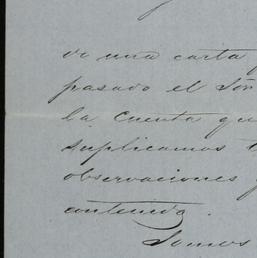 de una carta
pasado el Sor
la Cuenta que
suplicamos
observaciones
contenido.
Somos